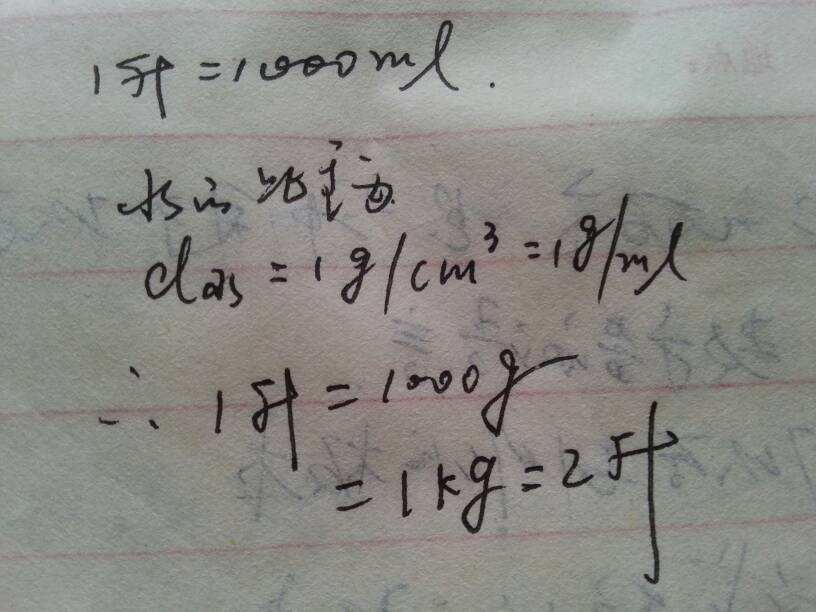 1升=1000ml.
水的比重
d水=1g/cm³=1g/ml
∴ 1升=1000g
=1kg=2斤